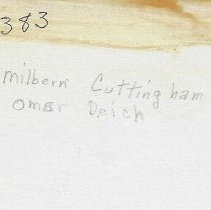 383
milbern Cuttingham
omar Deich